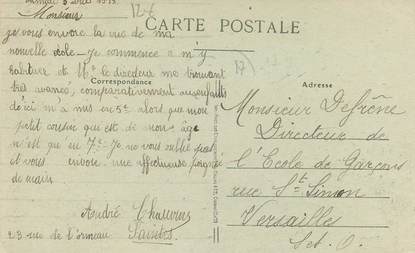 Monsieur
je vous envoie la vue de ma
nouvelle école. Je commence a m'y
habituer et Mr le directeur me trouvant
tres avancé, comparativement aux enfants
d'ici m'a mis en 5e alors que mon
petit cousin qui est de mon âge
n'est qu'en 7e. Je ne vous oublie pas
et vous envoie une affectueuse poignée
de main.
André Chauvin
23 rue de l'ormeau Saintes
126
CARTE POSTALE
Correspondance
Adresse
Monsieur Defrêne
Directeur de
l'Ecole de Garçons
rue St Simon
Versailles
Set. O.